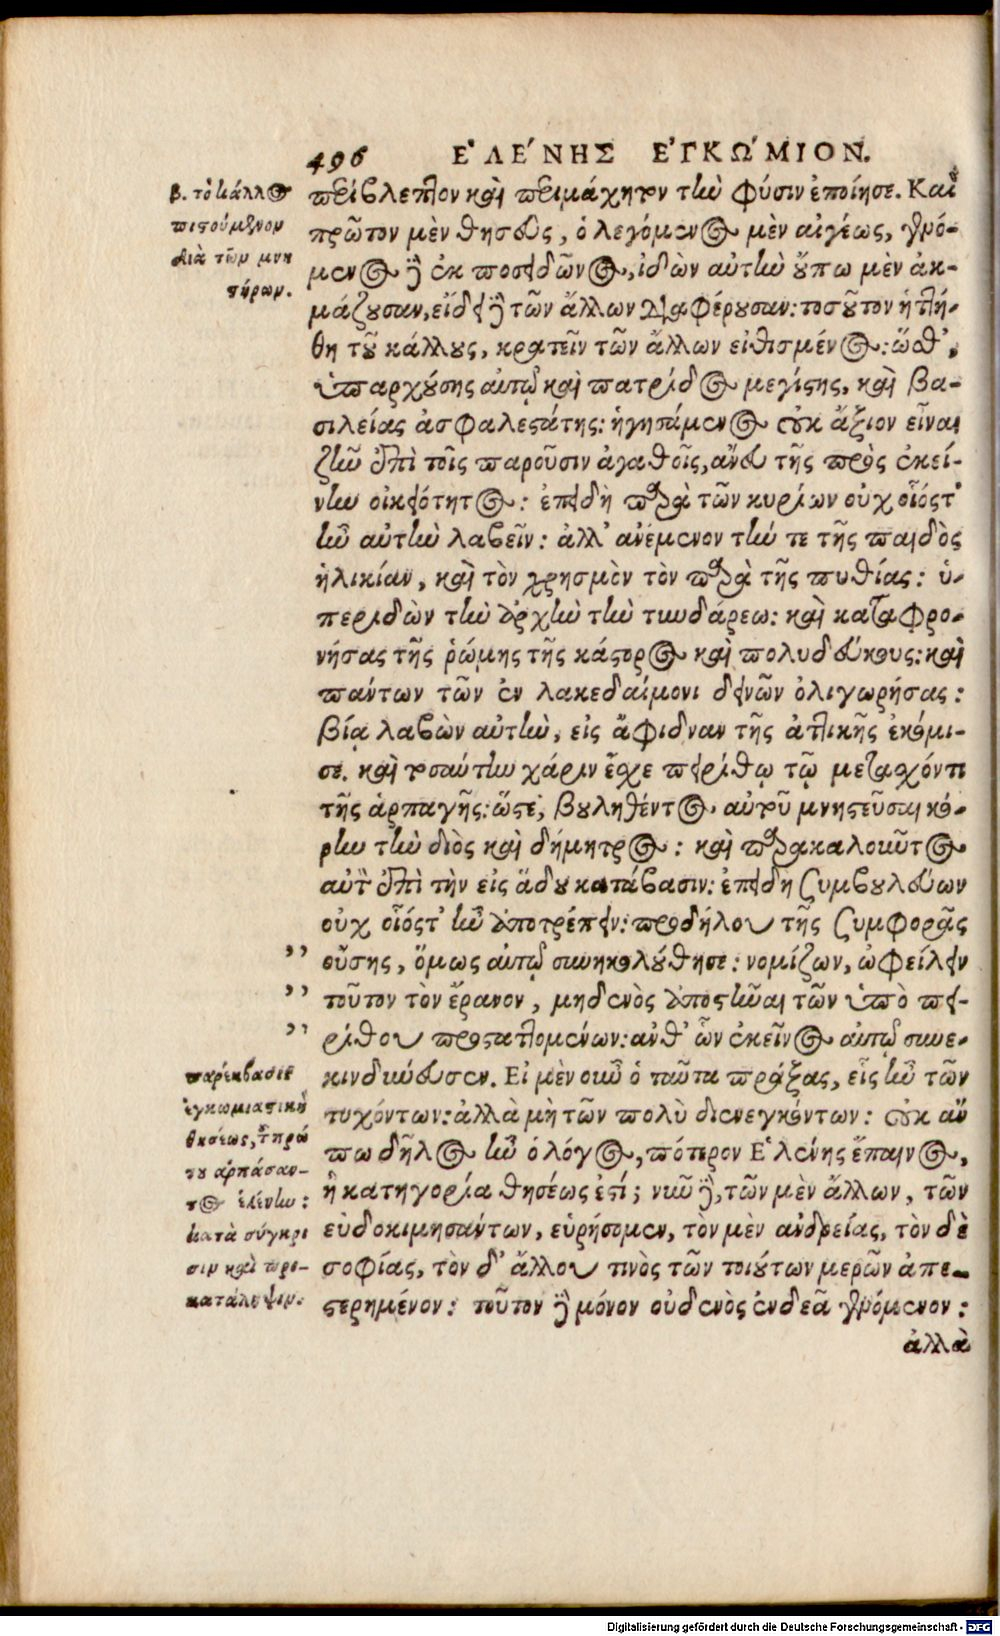 496 ΕʼΛΕΝΗΣ ΕʼΓΚΩΜΙΟΝ.
β. τὸ κάλλος
πιστούμενον
διὰ τῶν μνη
στήρων.
περίβλεπτον καὶ περιμάχητον τὴν φύσιν ἐποίησε. Καὶ
πρῶτον μὲν θησεὺς, ὁ λεγόμενος μὲν αἰγέως, γενό-
μενος δὲ ἐκ ποσειδῶνος, ἰδὼν αὐτὴν οὔπω μὲν ἀκ-
μάζουσαν, εἴδει δὲ τῶν ἄλλων διαφέρουσαν: τοσοῦτον ἡττή-
θη τοῦ κάλλους, κρατεῖν τῶν ἄλλων εἰθισμένος: ὥσθʼ,
ὑπαρχούσης αὐτῷ καὶ πατρίδος μεγίστης, καὶ βα-
σιλείας ἀσφαλεστάτης: ἡγησάμενος οὐκ ἄξιον εἶναι
ζῆν ἐπὶ τοῖς παροῦσιν ἀγαθοῖς, ἄνευ τῆς πρὸς ἐκεί-
νην οἰκειότητος: ἐπειδὴ παρὰ τῶν κυρίων οὐχ οἷόστʼ
ἦν αὐτὴν λαβεῖν: ἀλλʼ ἀνέμενον τήν τε τῆς παιδὸς
ἡλικίαν, καὶ τὸν χρησμὸν τὸν παρὰ τῆς πυθίας: ὑ-
περιδὼν τὴν ἀρχὴν τὴν τυνδάρεω: καὶ καταφρο-
νήσας τῆς ῥώμης τῆς κάστορος καὶ πολυδεύκους: καὶ
πάντων τῶν ἐν λακεδαίμονι δεινῶν ὀλιγωρήσας:
βίᾳ λαβὼν αὐτὴν, εἰς ἄφιδναν τῆς ἀττικῆς ἐκόμι-
σε. καὶ τοσαύτην χάριν ἔσχε πειρίθῳ τῷ μετασχόντι
τῆς ἁρπαγῆς: ὥστε, βουληθέντος αὐτοῦ μνηστεῦσαι κό-
ρην τὴν διὸς καὶ δήμητρος: καὶ παρακαλοῦντος
αὐτὸν ἐπὶ τὴν εἰς ᾅδου κατάβασιν: ἐπειδὴ ξυμβουλεύων
οὐχ οἷόστʼ ἦν ἀποτρέπειν: προδήλου τῆς ξυμφορᾶς
,, οὔσης, ὅμως αὐτῷ συνηκολούθησε: νομίζων, ὀφείλειν
,, τοῦτον τὸν ἔρανον, μηδενὸς ἀποστῆναι τῶν ὑπὸ πει-
,, ρίθου προσταττομένων: ἀνθʼ ὧν ἐκεῖνος αὐτῷ συνε-
παρέκβασις
ἐγκωμιαστικὴ
θησέως, τοῦ πρώ
του ἁρπάσαν-
τος ἑλένην:
κατὰ σύγκρι
σιν καὶ προ-
κατάληψιν.
κινδύνευσεν. Εἰ μὲν οὖν ὁ ταῦτα πράξας, εἷς ἦν τῶν
τυχόντων: ἀλλὰ μὴ τῶν πολὺ διενεγκόντων: οὐκ ἄν
πω δῆλος ἦν ὁ λόγος, πότερον Ἑλένης ἔπαινος,
ἢ κατηγορία θησέως ἐστί; νῦν δὲ, τῶν μὲν ἄλλων, τῶν
εὐδοκιμησάντων, εὑρήσομεν, τὸν μὲν ἀνδρείας, τὸν δὲ
σοφίας, τὸν δʼ ἄλλου τινὸς τῶν τοιούτων μερῶν ἀπε-
στερημένον: τοῦτον δὲ μόνον οὐδενὸς ἐνδεᾶ γενόμενον:
ἀλλὰ
Digitalisierung gefördert durch die Deutsche Forschungsgemeinschaft - DFG